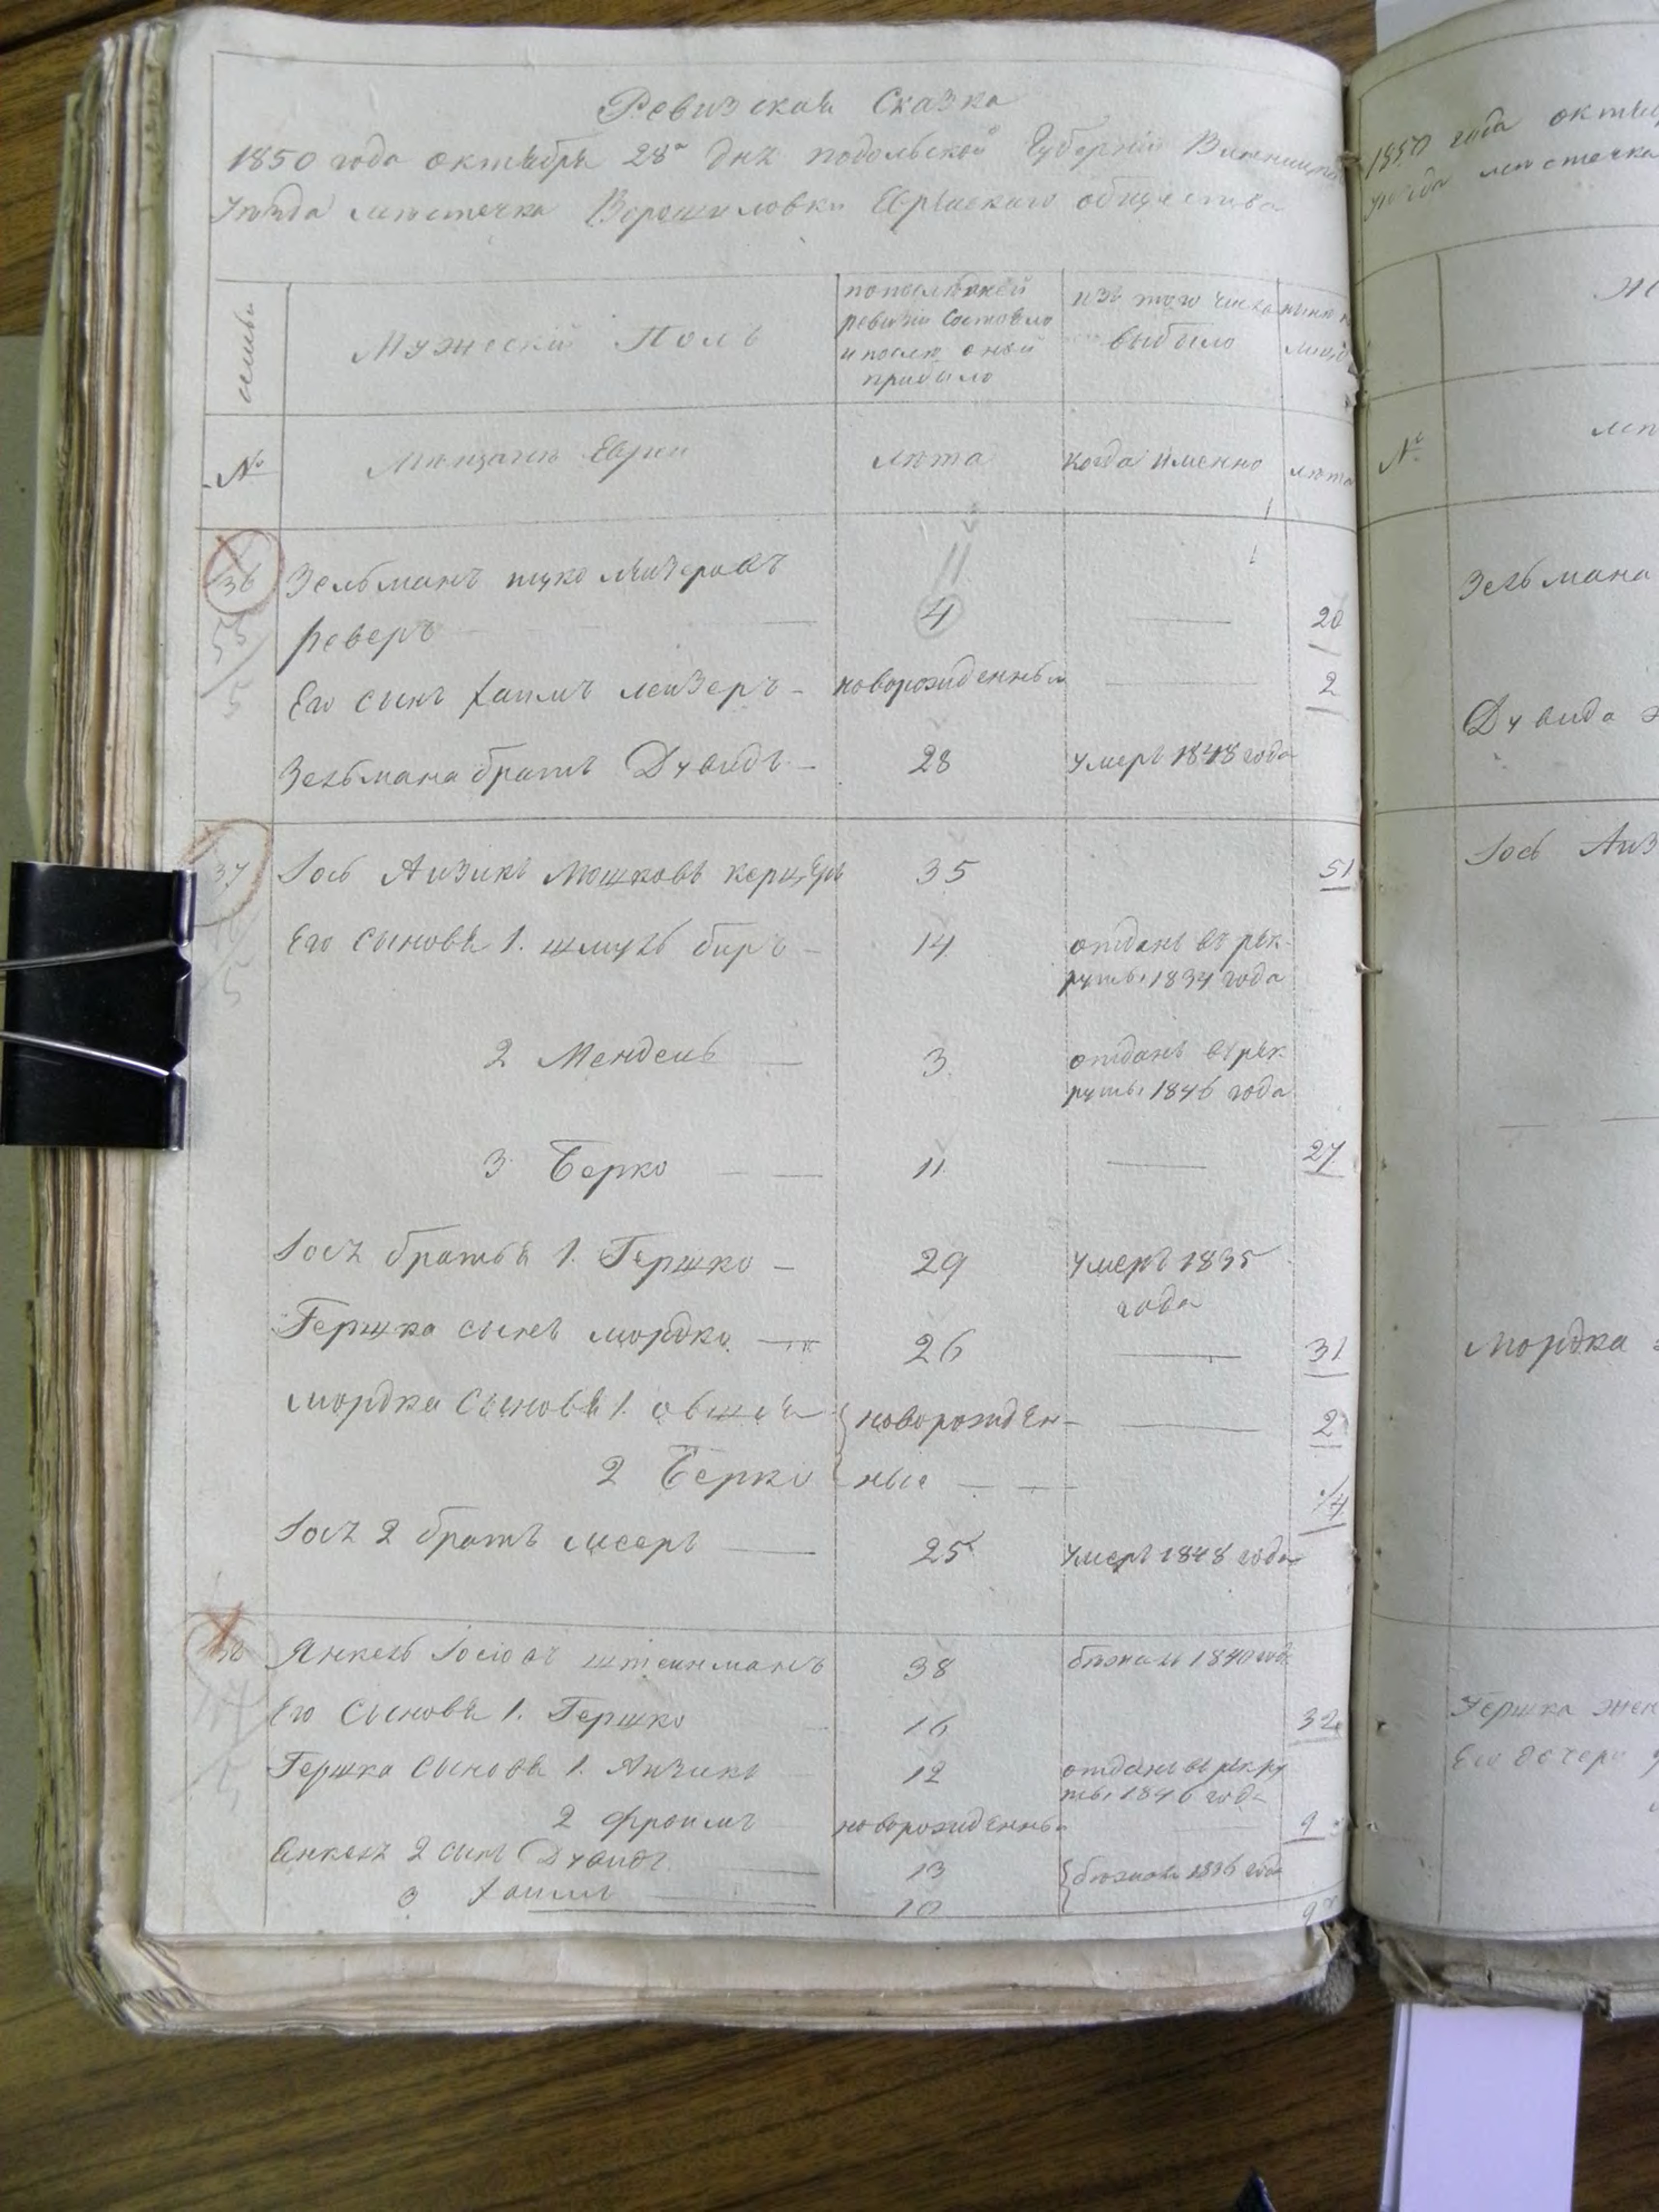 Ревизская Сказка
1850 года октября 28го дня подольской Губерніи Винницка
Уѣзда мѣстечка Ворошиловки Еврѣискаго общества
семьи
Мужескій Полъ
попослѣдней
ревизіи состояло
и послѣ оной
прибыло
изъ того числа
выбыло
нынѣ
№
Мѣщанѣ Евреи
лѣта
когда именно
лѣта
36 Зельманъ ицко Лейзеровъ
реверъ — 4 — 20
Его сынъ Хаимъ лейзеръ — новорожденный — 2
Зельмана братъ Дувидъ — 28 умеръ 1848 года
37 Іось Аизикъ Мошковъ 35 51
Его сыновья 1. шмуль биръ — 14 отданъ въ рек-
руты 1834 года
2 Мендель — 3 отданъ въ рек
руты 1846 года
3 Берко — 11 — 27
Іося братья 1. Гершко — 29 умеръ 1835
года
Гершка сынъ мордко — 26 — 31
мордка сыновья 1. овшея новорожден- — 2
2 Берко ные — 1/4
Іося 2 братъ мееръ — 25 умеръ 1848 года
38 Янкель Іосіовъ штеинманъ 38 бѣжалъ 1840 года
Его Сыновья 1. Гершко 16 32
Гершка Сыновья 1. Аизикъ 12 отданъ въ рекру
ты 1846 года
2 фроимъ новорожденный 9
Янкеля 2 сынъ Дувидъ — 13 бѣжали 1836 года
3 Хаимъ — 10
1850 года октяб
уѣзда мѣстечка
№
Зельмана
Дувида
Іося Аиз
Мордка
Гершка жен
Его дочери